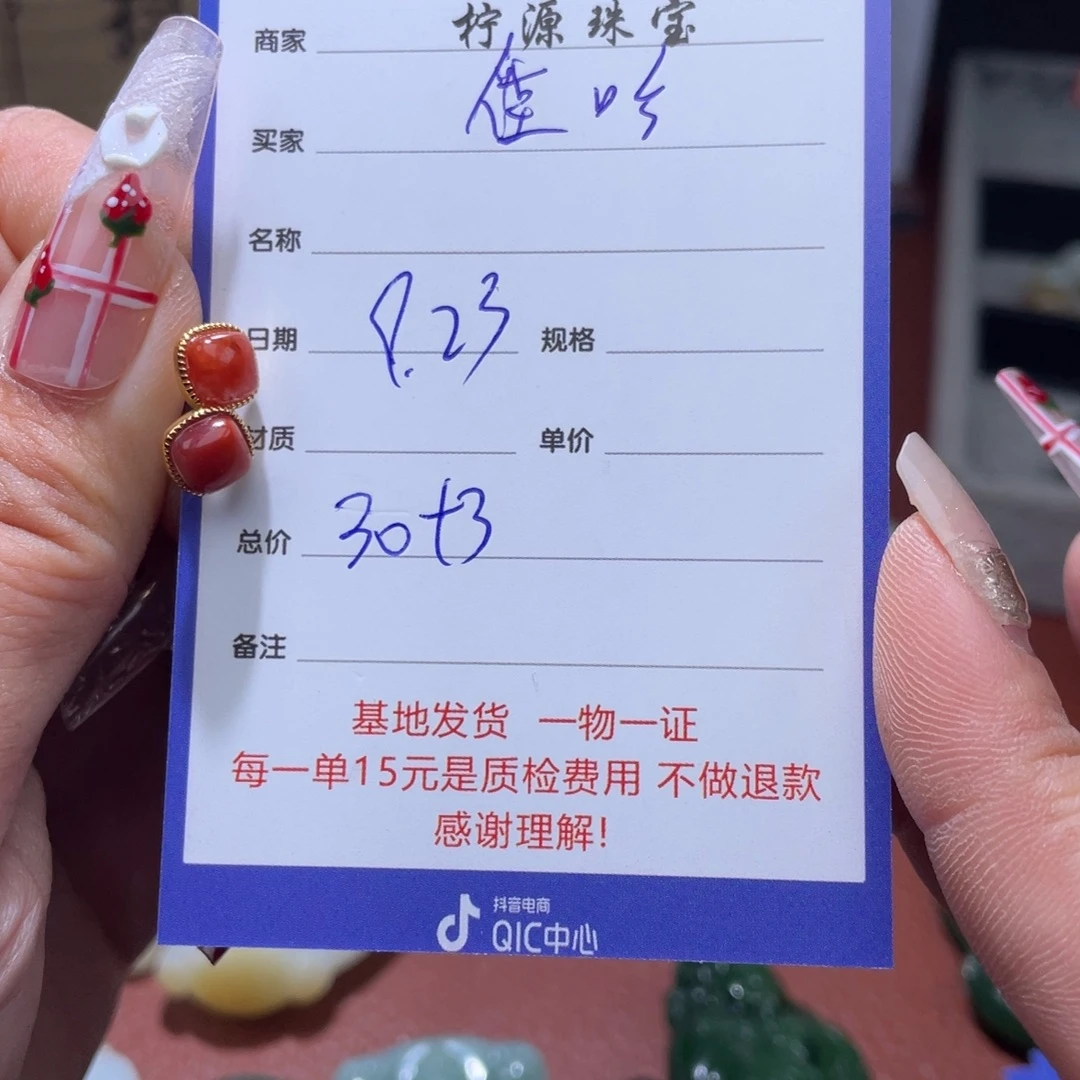 商家 柠源珠宝
买家
名称
日期 8.23 规格
材质 单价
总价 30
备注
基地发货 一物一证
每一单15元是质检费用 不做退款
感谢理解!
抖音电商
QIC中心